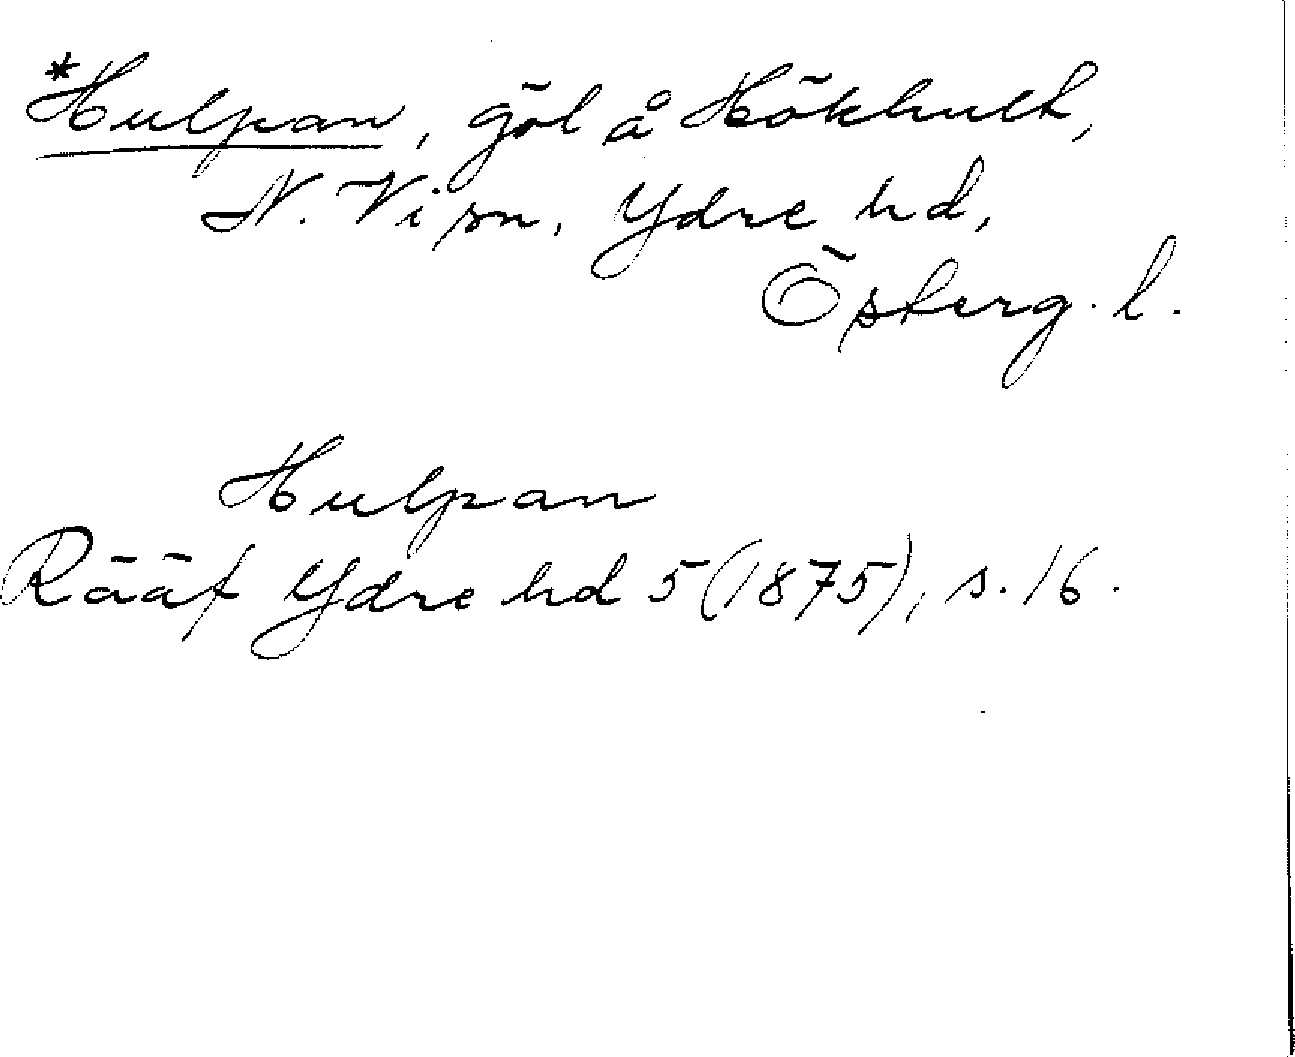 *Hulpan, göl å Hökhult,
N. Vi sn, Ydre hd,
Österg. l.
Hulpan
Rääf Ydre hd 5 (1875), s. 16.